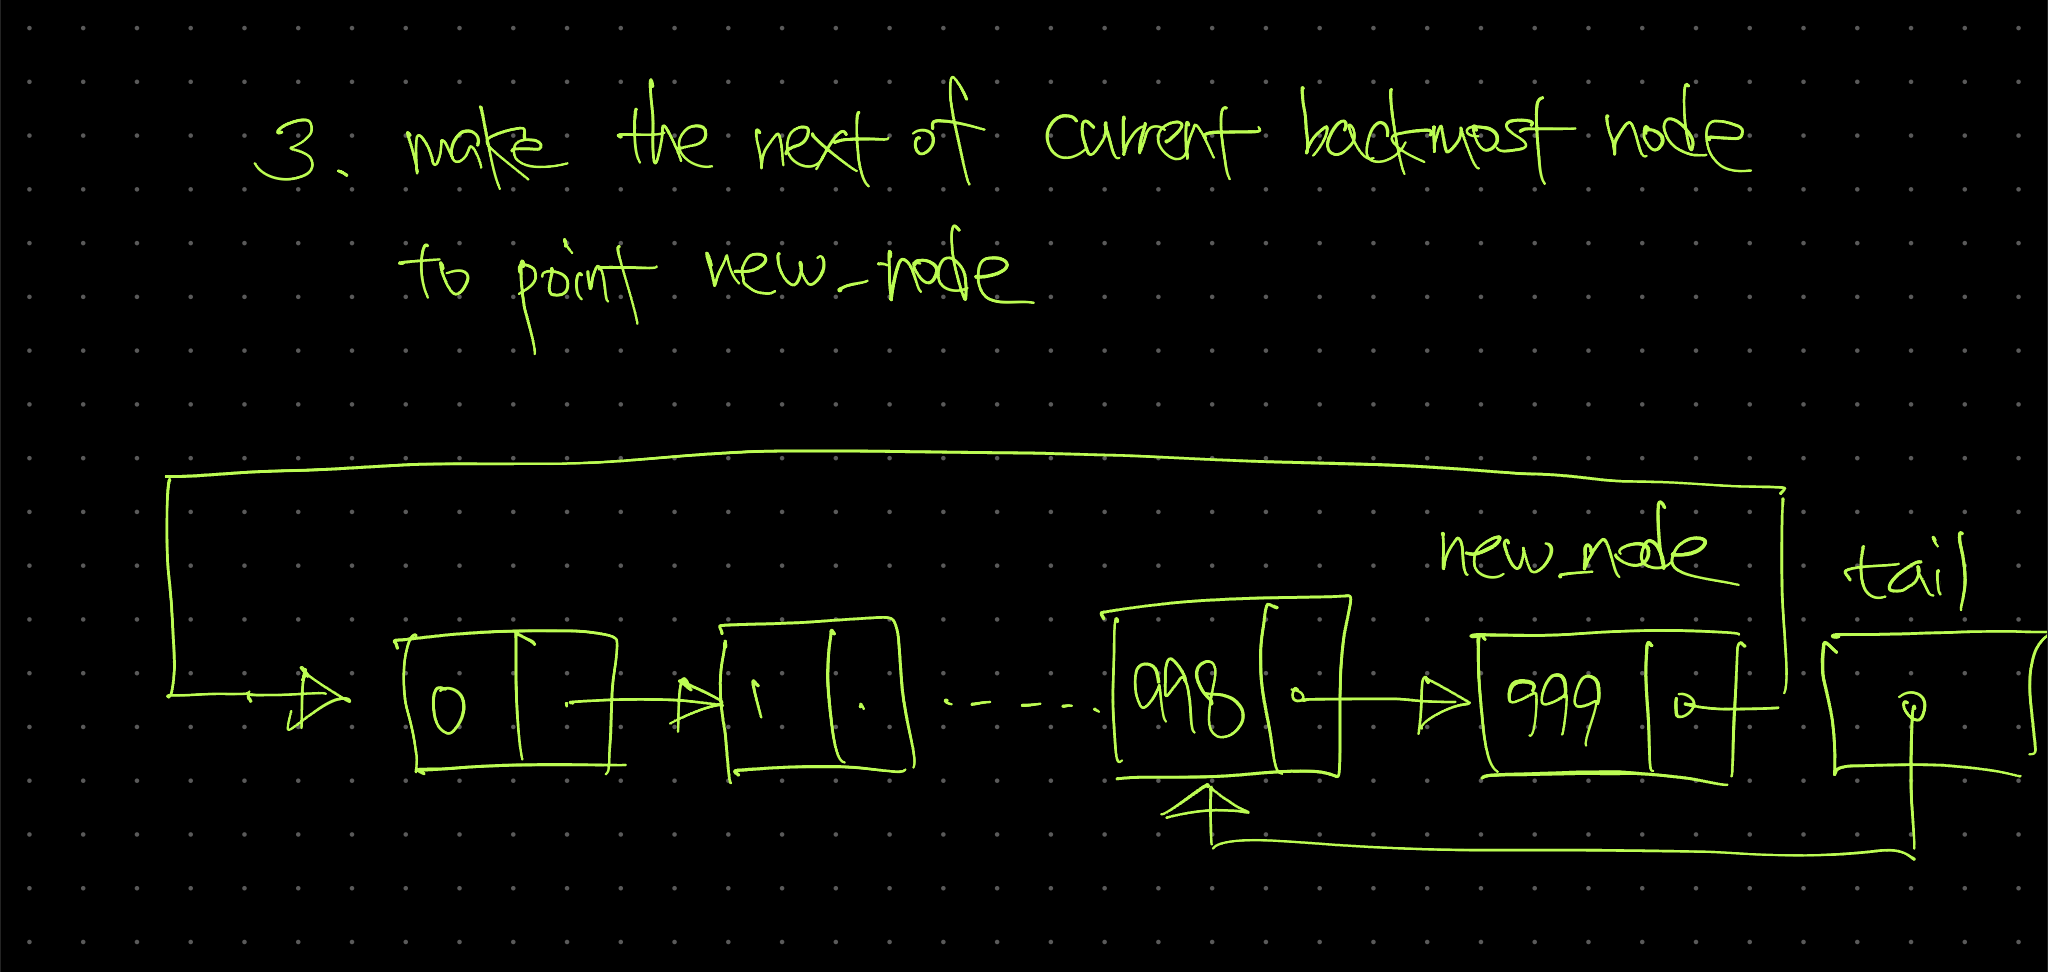 3. make the next of current backmost node
to point new_node
new_node
tail
0
1
998
999